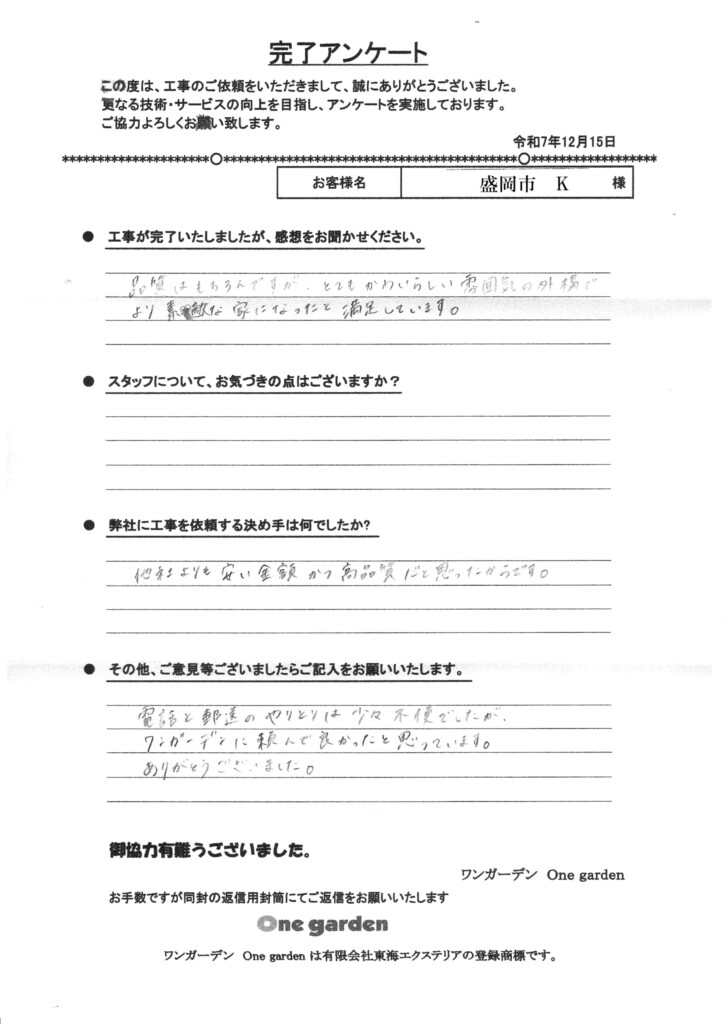 完了アンケート
この度は、工事のご依頼をいただきまして、誠にありがとうございました。
更なる技術・サービスの向上を目指し、アンケートを実施しております。
ご協力よろしくお願い致します。
令和7年12月15日
お客様名 盛岡市 K 様
● 工事が完了いたしましたが、感想をお聞かせください。
品質はもちろんですが、とてもかわいらしい雰囲気の外構で
より素敵な家になったと満足しています。
● スタッフについて、お気づきの点はございますか？
● 弊社に工事を依頼する決め手は何でしたか?
他社よりも安い金額かつ高品質だと思ったからです。
● その他、ご意見等ございましたらご記入をお願いいたします。
電話と郵送のやりとりは少々不便でしたが、
ワンガーデンに頼んで良かったと思っています。
ありがとうございました。
御協力有難うございました。
ワンガーデン One garden
お手数ですが同封の返信用封筒にてご返信をお願いいたします
One garden
ワンガーデン One garden は有限会社東海エクステリアの登録商標です。